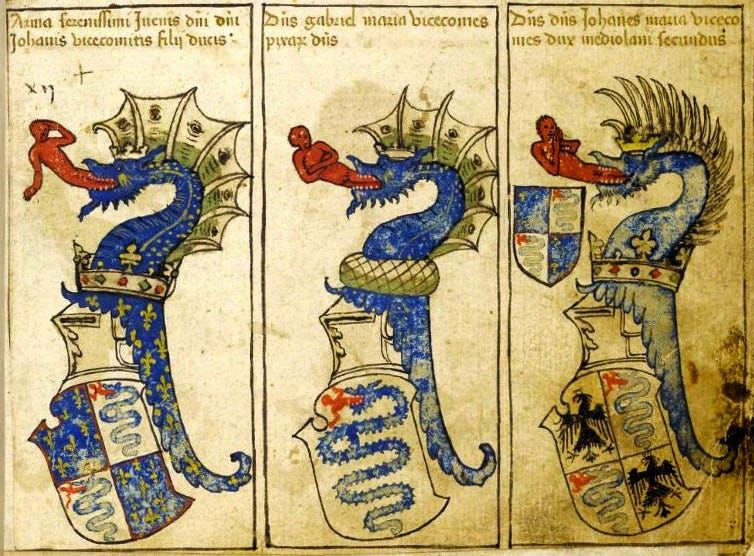 Arma serenissimi Juenis dni dni
Johanis vicecomitis filij ducis ·
Dns gabriel maria vicecomes
pixaꝝ dns
Dns dns Johanes maria viceco
mes dux mediolani secundus